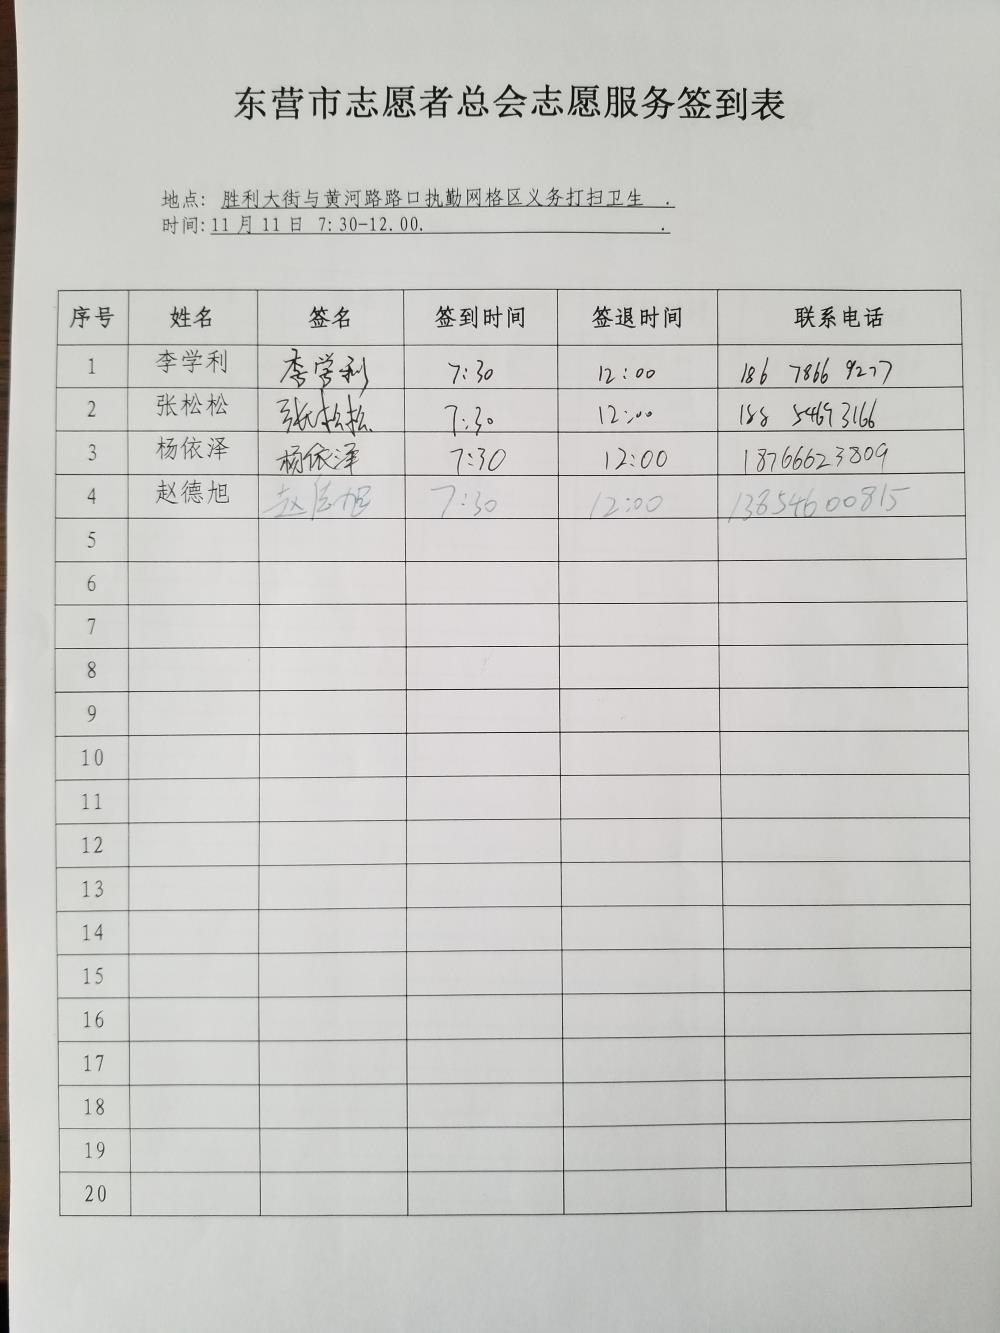 东营市志愿者总会志愿服务签到表
地点: 胜利大街与黄河路路口执勤网格区义务打扫卫生 .
时间: 11月11日 7:30-12.00. .
序号 姓名 签名 签到时间 签退时间 联系电话
1 李学利 李学利 7:30 12:00 186 7866 9277
2 张松松 张松松 7:30 12:00 188 5469 3166
3 杨依泽 杨依泽 7:30 12:00 18766623809
4 赵德旭 赵德旭 7:30 12:00 13854600815
5
6
7
8
9
10
11
12
13
14
15
16
17
18
19
20